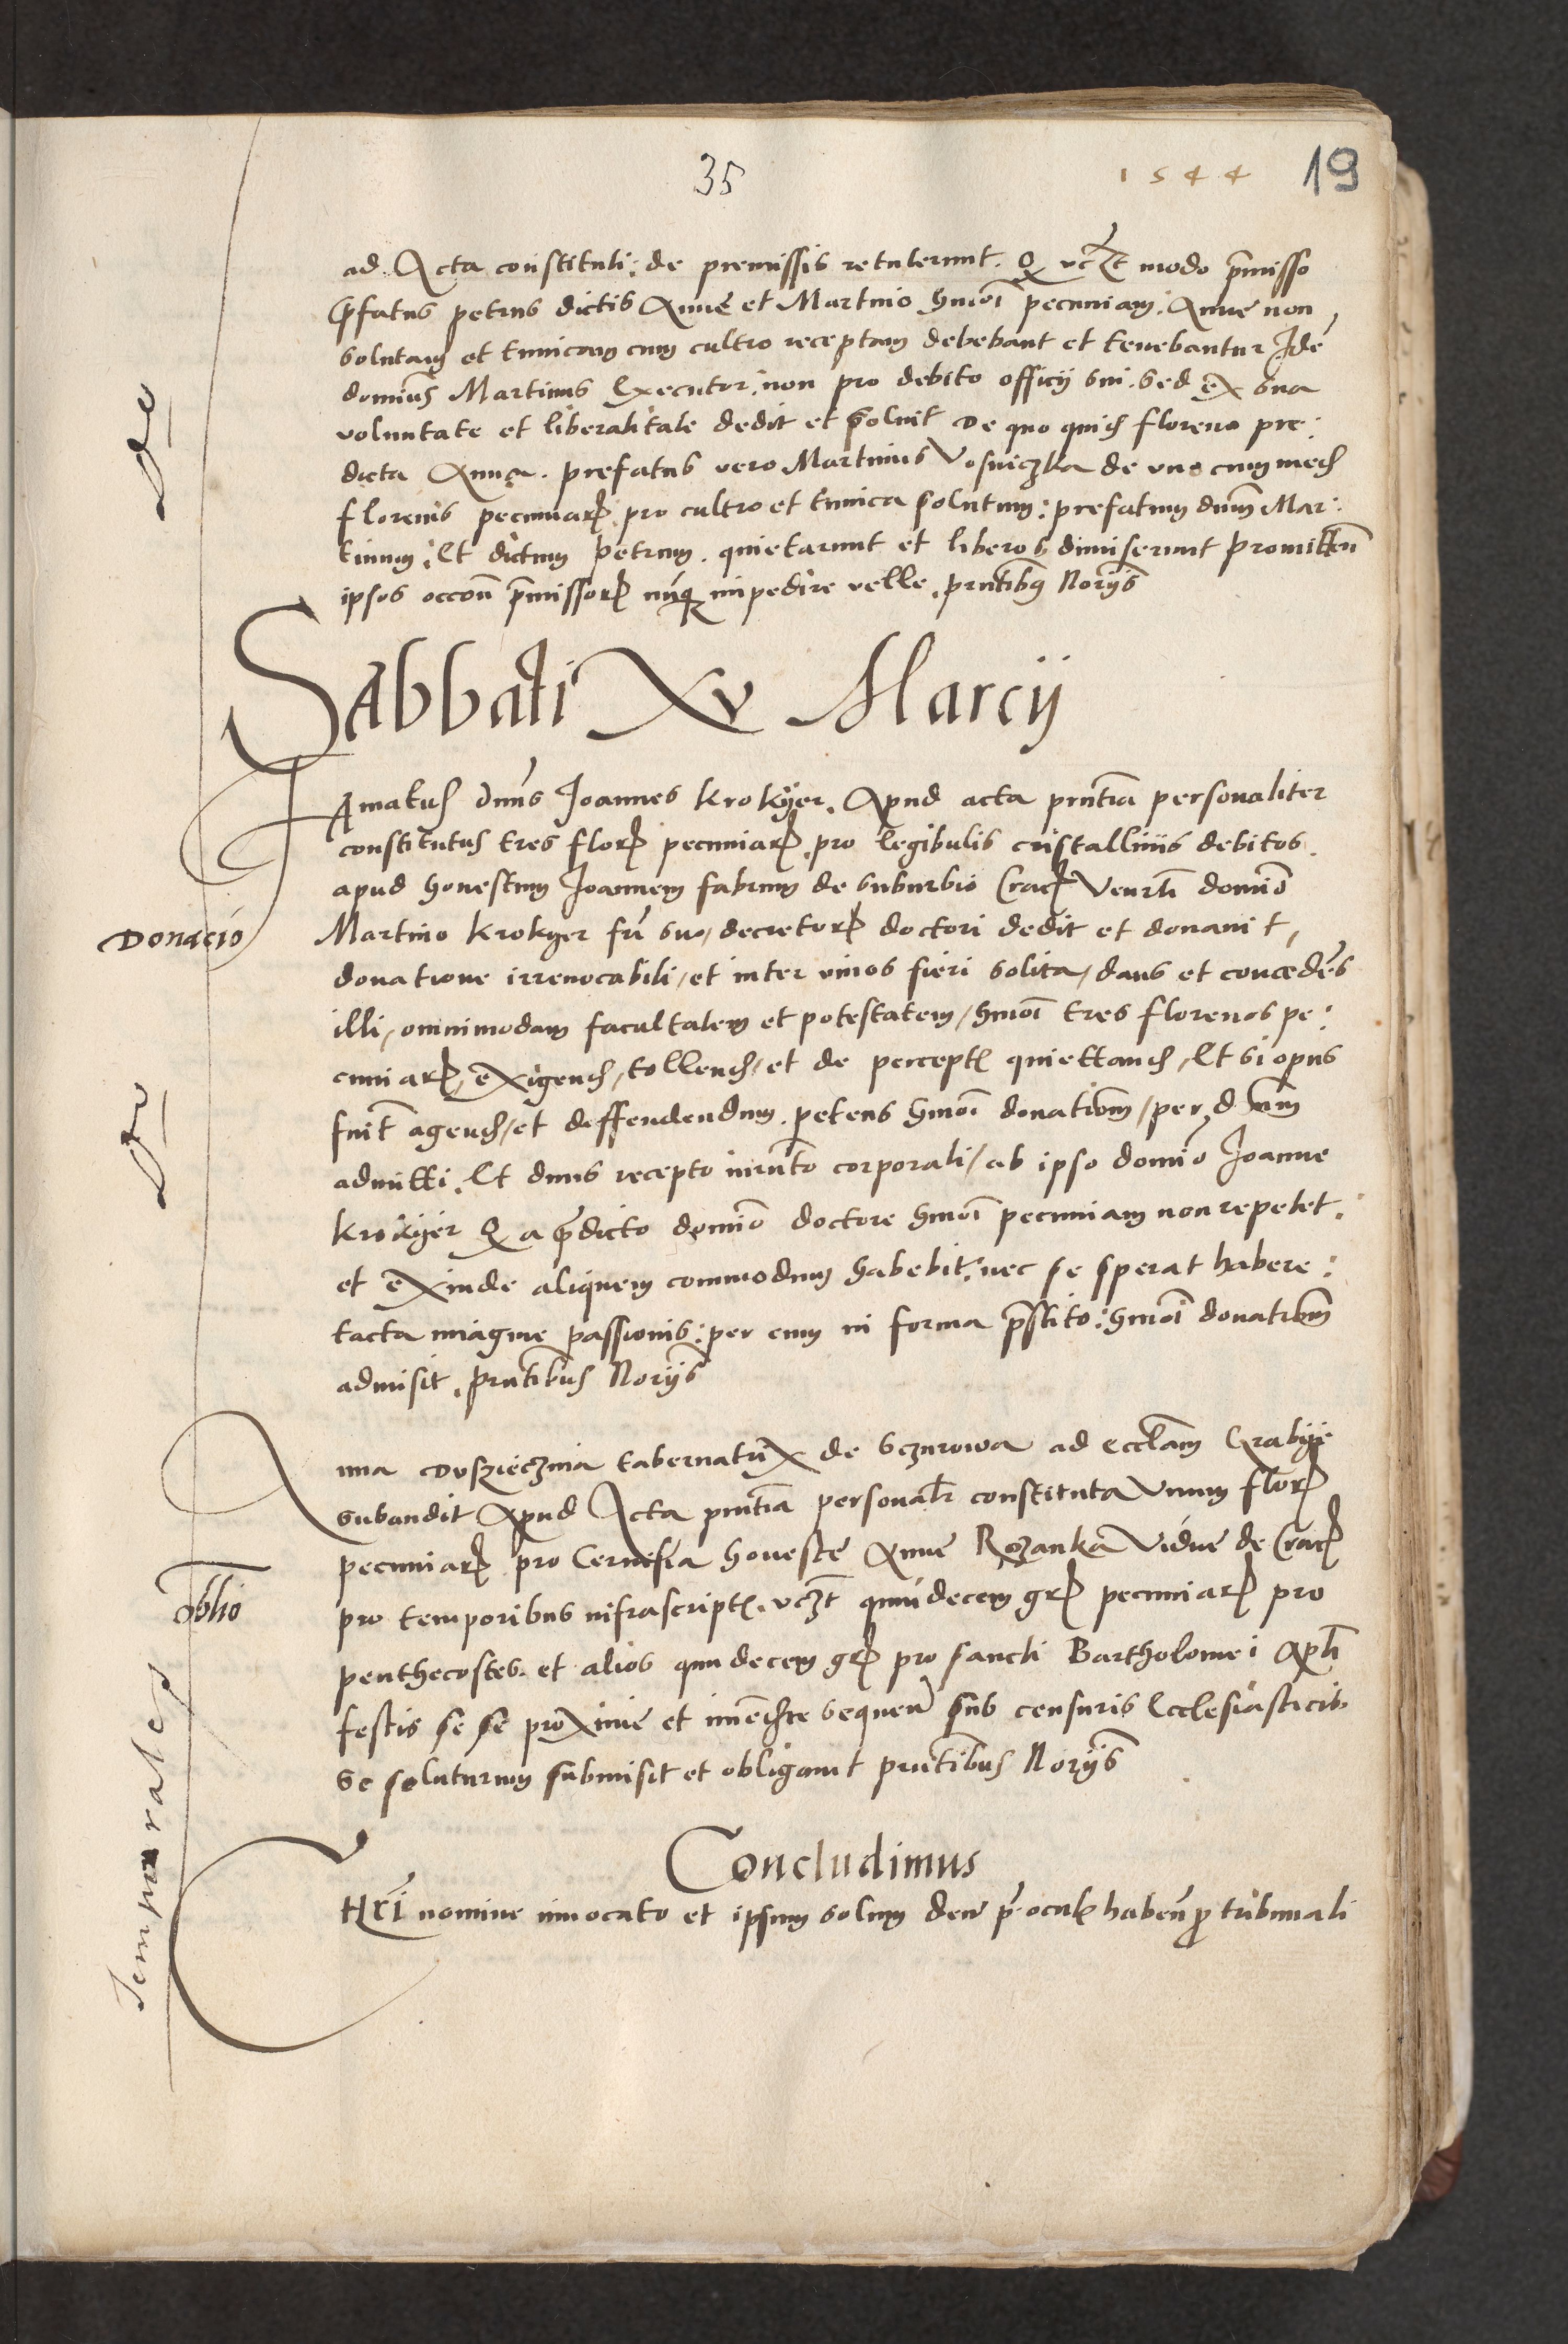 35
1544 19
ad Acta constituti: de premissis retulerunt. Q vcz̃t modo p̃misso
p̃fatus petrus dictis Anne et Martino hmõi pecuniam. Anne non
solutam et tunicam cum cultro receptam debebant et tenebantur Idẽ
domin⁹ Martinus Executor: non pro debito officij sui. sed ex sua
voluntate et liberalitate dedit et soluit De quo quid floreno pre:
dicta Anna. prefatus vero Martinus Vosniczka de vno cum med
florenis pecuniar̃ pro cultro et tunica solutum: prefatum dnm̃ Mar:
tinum: Et dictum Petrum. quietarunt et liberos dimiserunt Promitteñ
ipsos occoñ p̃missor̃ nũq impedire velle. pñtib⁹ Norijs
Sabbati Xv Marcij
Amatus dñus Joannes Krokÿer. Apud acta pñtia personaliter
constitutus tres flor̃ pecuniar̃. pro legibulis cristallinis debitos.
apud honestum Joannem fabrum de suburbio Crac̃ Veñli domiõ
Donacio
Martino Krokyer frĩ suo, decretor̃ doctori dedit et donauit,
donatione irreuocabili, et inter viuos fieri solita, dans et concedẽs
illi, omnimodam facultatem et potestatem, hmõi tres florenos pe:
cuniar̃, exigend, tollend, et de percept̃ quiettand, Et si opus
fuit̃ agend, et deffendendum. petens hmõi donatioñm, per d vm̃
admitti. Et dñus recepto iurñto corporali, ab ipso domiõ Joanne
Krokÿer Q a p̃dicto domiõ doctore hmõi pecuniam non repetet.
et exinde aliquem commodum habebit: nec se sperat habere:
tacta imagine passionis: per eum in forma p̃stito: hmõi donatioñm
admisit. pñtibus Norijs
Anna Duszieczina tabernatrix de Sczurowa ad eccl̃am Grabye
subaudit Apud Acta pñtia personalr̃ constituta Vnum flor̃
pecuniar̃ pro Ceruisia honeste Anne Rozanka Vidue de Crac̃
oblio
pro temporibus infrascript̃. vcz̃t quindecem gr̃ pecuniar̃ pro
penthecostes. et alios quindecem gr̃ pro sancti Bartholomei Apl̃i
festis se se proxime et imẽdte sequeñ sub censuris Ecclesiasticis
se soluturum submisit et obligauit pñtibus Norijs
Temporales
Concludimus
CHrĩ nomine inuocato et ipsum solum deũ p̃ ocul̃ habeñ p tribunali